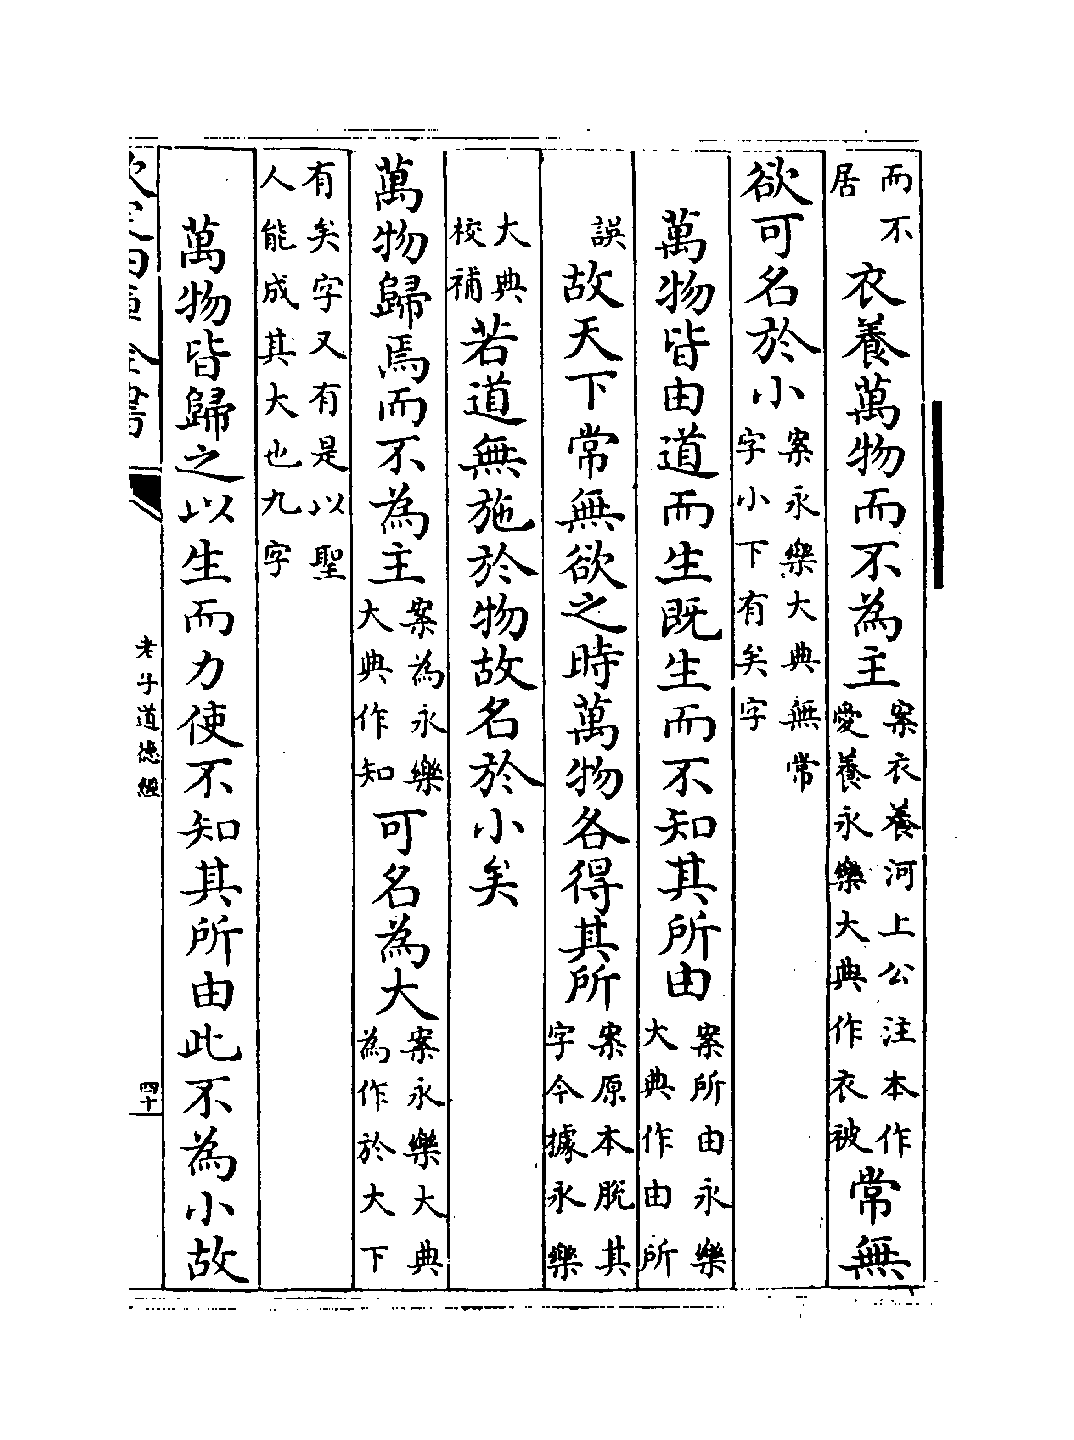 而不居衣養萬物而不為主案衣養河上公注本作愛養永樂大典作衣被常無
欲可名於小案永樂大典無常字小下有矣字
萬物皆由道而生既生而不知其所由案所由永樂大典作由所
誤故天下常無欲之時萬物各得其所案原本脫其字今據永樂
大典校補若道無施於物故名於小矣
萬物歸焉而不為主案為永樂大典作知可名為大案永樂大典為作於大下
有矣字又有是以聖人能成其大也九字
萬物皆歸之以生而力使不知其所由此不為小故
欽定四庫全書
老子道德經
四十